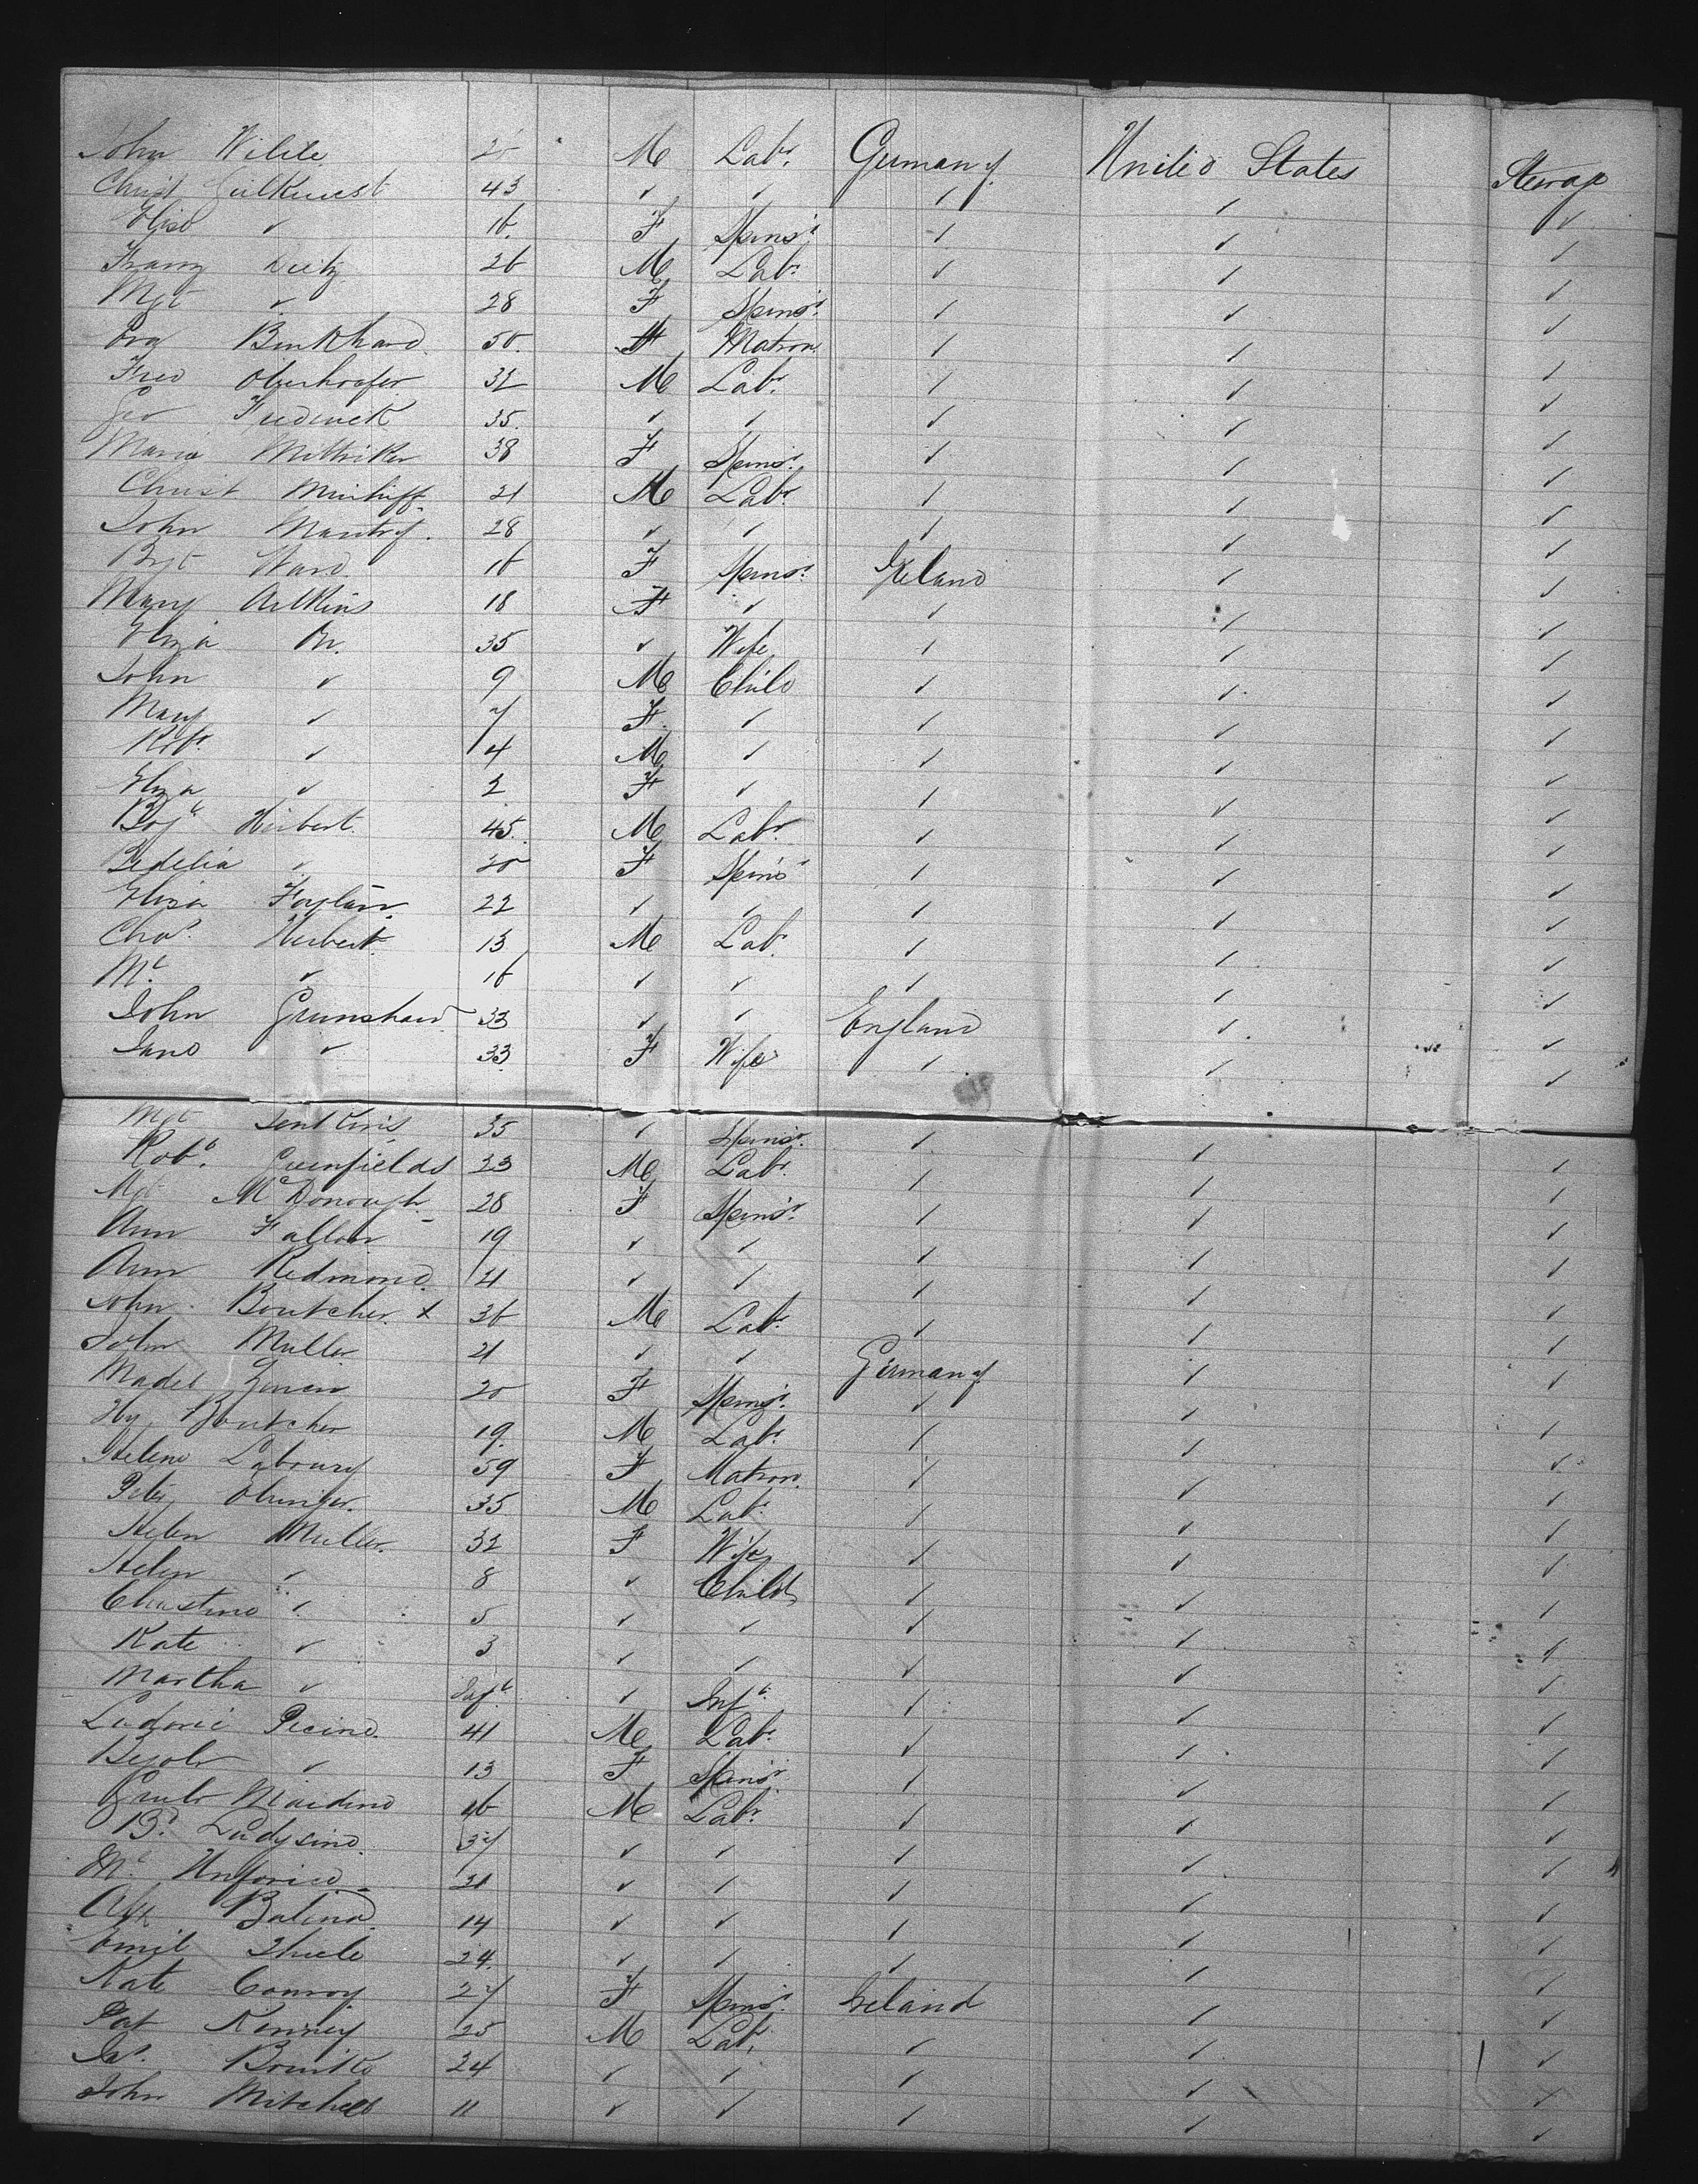 John Wilile 20 M Labr. Germany United States Steerage
Christ 43 ✓ ✓ ✓ ✓ ✓
Elise ✓ 16 F Spinsr. ✓ ✓ ✓
Franz Deitz 26 M Labr. ✓ ✓ ✓
Mgt ✓ 28 F Spinsr. ✓ ✓ ✓
Eva Burkhard 50 F Matron ✓ ✓ ✓
Fred Oberhoofer 32 M Labr. ✓ ✓ ✓
Geo Frederick 35 ✓ ✓ ✓ ✓ ✓
Maria Mittriker 38 F Spinsr. ✓ ✓ ✓
Christ Minhiff 21 M Labr. ✓ ✓ ✓
John Mantry 28 ✓ ✓ ✓ ✓ ✓
Bgt Ward 16 F Spinsr. Ireland ✓ ✓
Mary Aitkins 18 F ✓ ✓ ✓ ✓
Eliza Orr 35 ✓ Wife ✓ ✓ ✓
John ✓ 9 M Child ✓ ✓ ✓
Mary ✓ 7 F ✓ ✓ ✓ ✓
Robt. ✓ 4 M ✓ ✓ ✓ ✓
Eliza ✓ 2 F ✓ ✓ ✓ ✓
Hirbert 45 M Labr ✓ ✓ ✓
Bedelia ✓ 20 F Spinsr ✓ ✓ ✓
Eliza 22 ✓ ✓ ✓ ✓ ✓
Chas. Herbert 13 M Labr. ✓ ✓ ✓
✓ 16 ✓ ✓ ✓ ✓ ✓
John Grunshaw 33 ✓ ✓ England ✓ ✓
Jane ✓ 33 F Wife ✓ ✓ ✓
Mgt Jenkins 35 ✓ Spinsr. ✓ ✓ ✓
Robt. Greenfields 23 M Labr. ✓ ✓ ✓
Mgt McDonough 28 F Spinsr. ✓ ✓ ✓
Ann Fallon 19 ✓ ✓ ✓ ✓ ✓
Ann Redmond 21 ✓ ✓ ✓ ✓ ✓
John Boutcher x 36 M Labr. ✓ ✓ ✓
John Muller 21 ✓ ✓ Germany ✓ ✓
Madel 20 F Spinsr. ✓ ✓ ✓
Hy Boutcher 19 M Labr. ✓ ✓ ✓
Helene Laboury 59 F Matron ✓ ✓ ✓
Peter 35 M Labr. ✓ ✓ ✓
Helen Muller 32 F Wife ✓ ✓ ✓
Helen ✓ 8 ✓ Child ✓ ✓ ✓
Christine ✓ 5 ✓ ✓ ✓ ✓ ✓
Kate ✓ 3 ✓ ✓ ✓ ✓ ✓
Martha ✓ Inft. ✓ Inft. ✓ ✓ ✓
Ludovic Pecino 41 M Labr. ✓ ✓ ✓
✓ 13 F Spinsr. ✓ ✓ ✓
Maidino 46 M Labr. ✓ ✓ ✓
Ladysino 37 ✓ ✓ ✓ ✓ ✓
21 ✓ ✓ ✓ ✓ ✓
Alex Balino 14 ✓ ✓ ✓ ✓ ✓
Emil Thiele 24 ✓ ✓ ✓ ✓ ✓
Kate Conroy 27 F Spinsr. Ireland ✓ ✓
Pat Kenney 25 M Labr. ✓ ✓ ✓
Jas. 24 ✓ ✓ ✓ ✓ ✓
John Mitchell 11 ✓ ✓ ✓ ✓ ✓